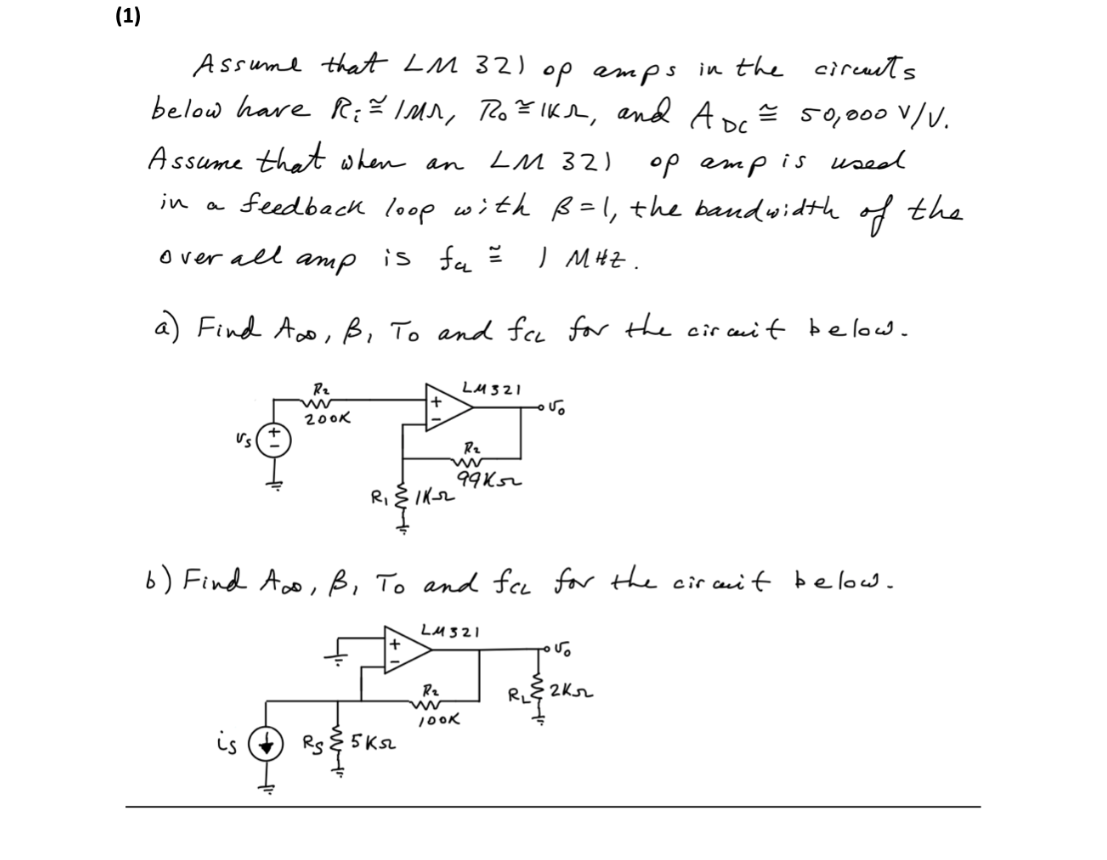 (1)
Assume that LM 321 op amps in the circuits
below have Ri ≅ 1MΩ, Ro ≅ 1KΩ, and ADC ≅ 50,000 V/V.
Assume that when an LM 321 op amp is used
in a feedback loop with β=1, the bandwidth of the
over all amp is fcl ≅ 1 MHZ.
a) Find A∞, β, To and fCL for the circuit below.
R2
200K
LM321
+
−
υo
υs
+
−
R2
99KΩ
R1
1KΩ
b) Find A∞, β, To and fCL for the circuit below.
LM321
+
−
υo
R2
100K
RL
2KΩ
is
RS
5KΩ